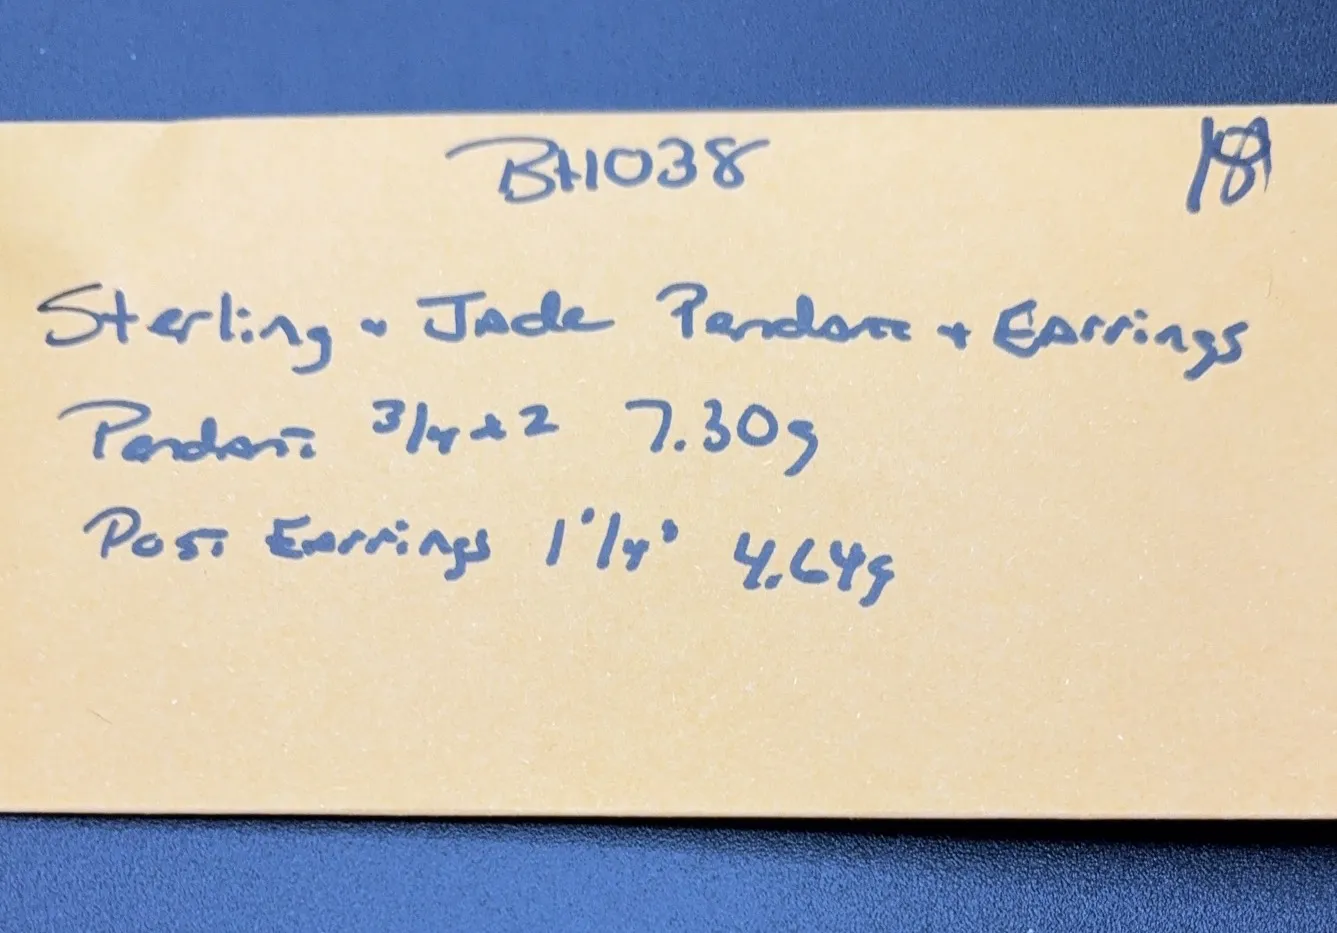 BH1038
Sterling Jade Pendant + Earrings
Pendant 3/4 x 2 7.30g
Post Earrings 1 1/4" 4.64g